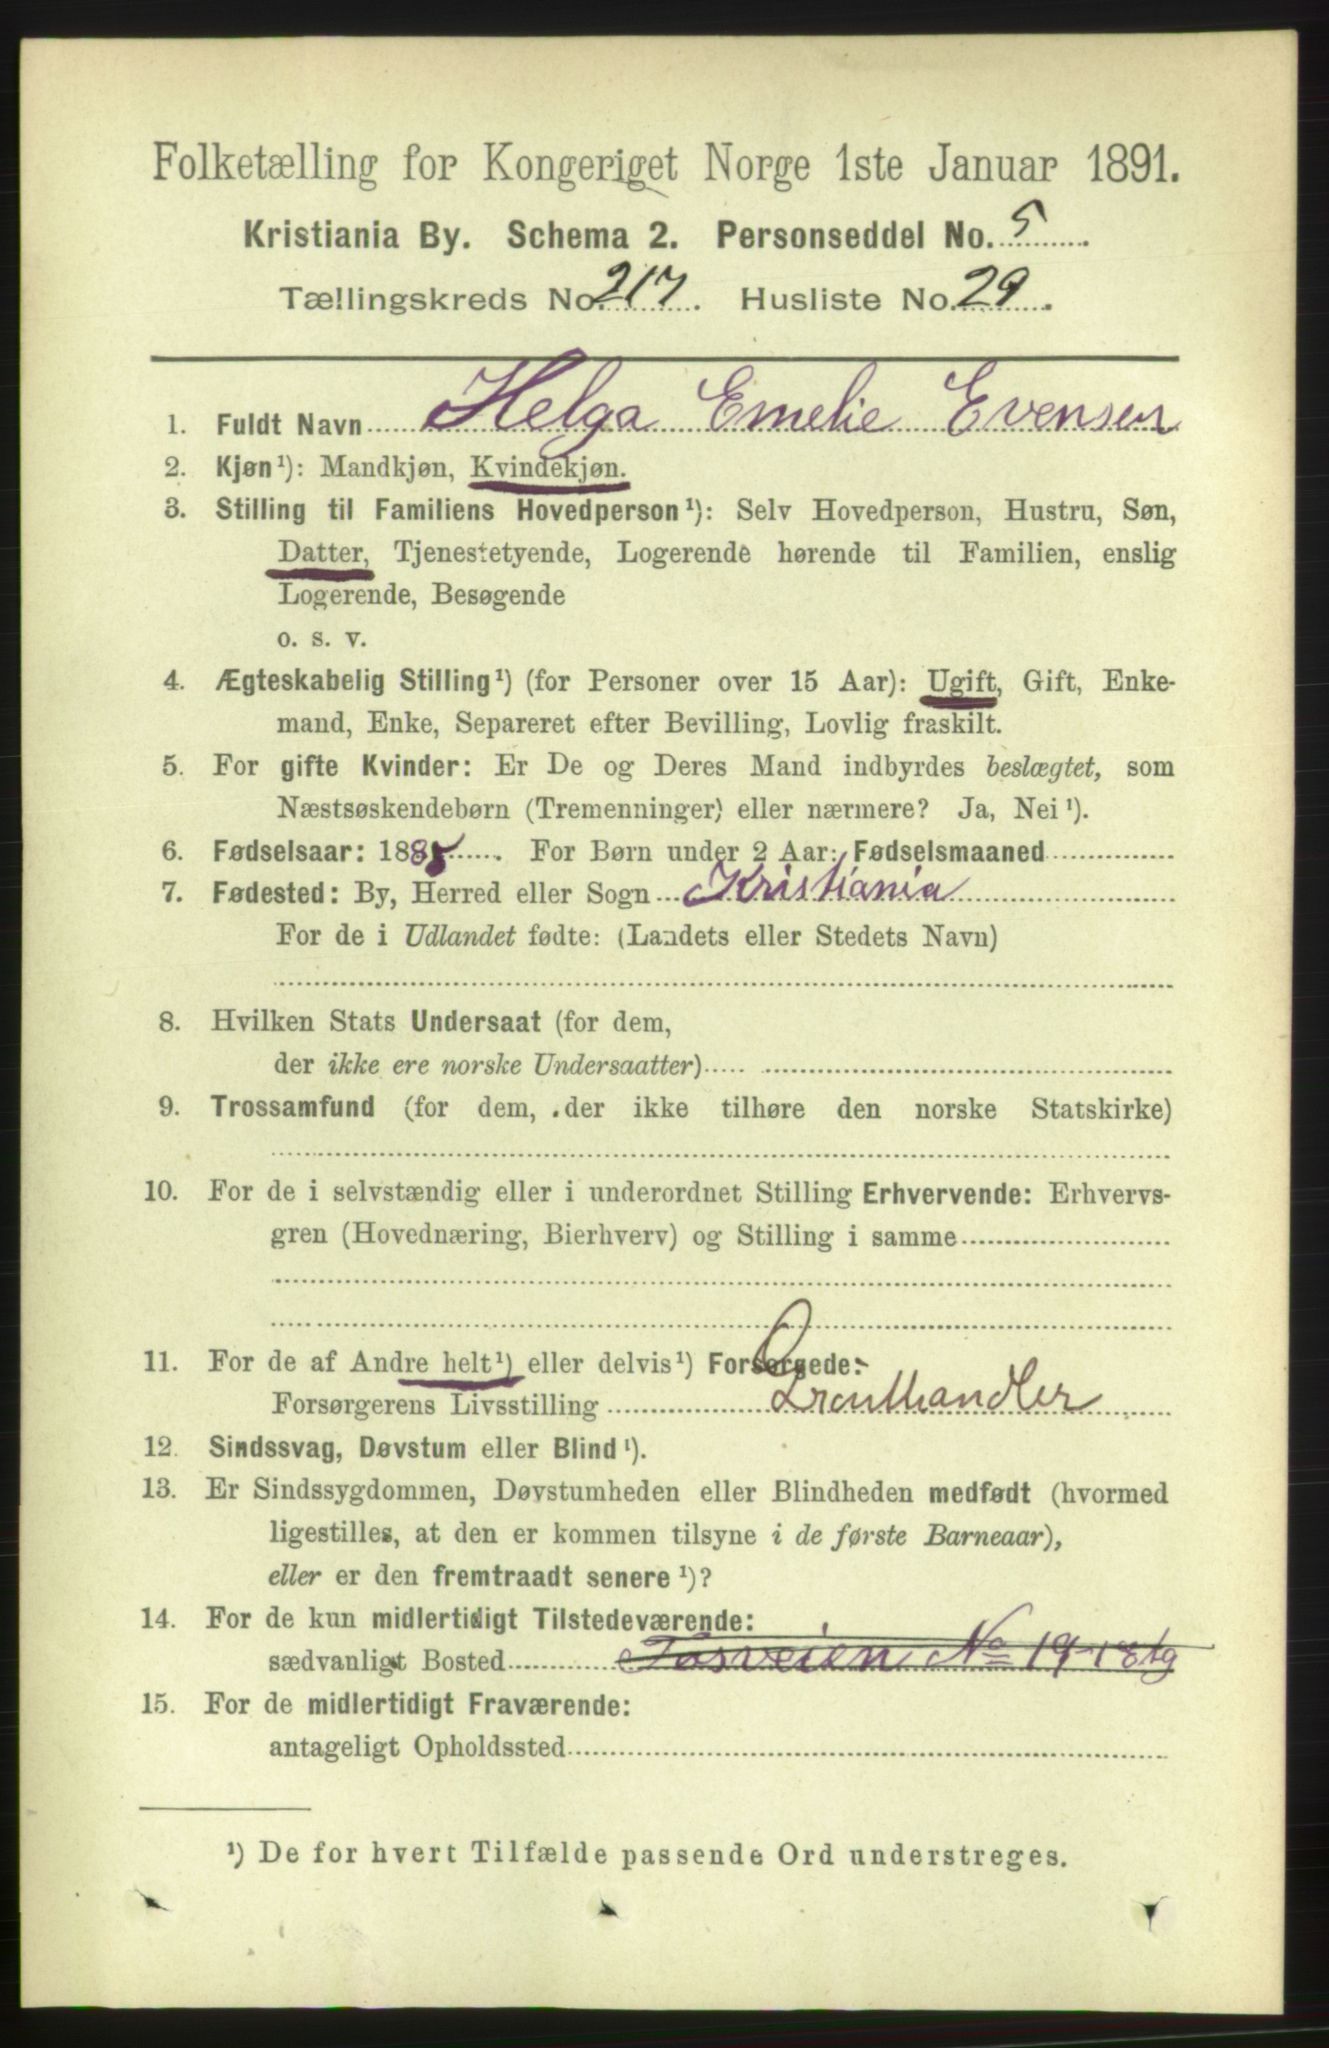 Folketælling for Kongeriget Norge 1ste Januar 1891.
Kristiania By. Schema 2. Personseddel No. 5
Tællingskreds No. 217. Husliste No. 29.
1. Fuldt Navn Helga Emelie Evensen
2. Kjøn¹): Mandkjøn, Kvindekjøn.
3. Stilling til Familiens Hovedperson¹): Selv Hovedperson, Hustru, Søn,
Datter, Tjenestetyende, Logerende hørende til Familien, enslig
Logerende, Besøgende
o. s. v.
4. Ægteskabelig Stilling¹) (for Personer over 15 Aar): Ugift, Gift, Enke-
mand, Enke, Separeret efter Bevilling, Lovlig fraskilt.
5. For gifte Kvinder: Er De og Deres Mand indbyrdes beslægtet, som
Næstsøskendebørn (Tremenninger) eller nærmere? Ja, Nei¹).
6. Fødselsaar: . For Børn under 2 Aar: Fødselsmaaned
7. Fødested: By, Herred eller Sogn Kristiania
For de i Udlandet fødte: (Landets eller Stedets Navn)
8. Hvilken Stats Undersaat (for dem,
der ikke ere norske Undersaatter)
9. Trossamfund (for dem, der ikke tilhøre den norske Statskirke)
10. For de i selvstændig eller i underordnet Stilling Erhvervende: Erhvervs-
gren (Hovednæring, Bierhverv) og Stilling i samme
11. For de af Andre helt¹) eller delvis¹) Forsørgede:
Forsørgerens Livsstilling
12. Sindssvag, Døvstum eller Blind¹).
13. Er Sindssygdommen, Døvstumheden eller Blindheden medfødt (hvormed
ligestilles, at den er kommen tilsyne i de første Barneaar),
eller er den fremtraadt senere¹)?
14. For de kun midlertidigt Tilstedeværende:
sædvanligt Bosted No 19 1 Etg
15. For de midlertidigt Fraværende:
antageligt Opholdssted
¹) De for hvert Tilfælde passende Ord understreges.